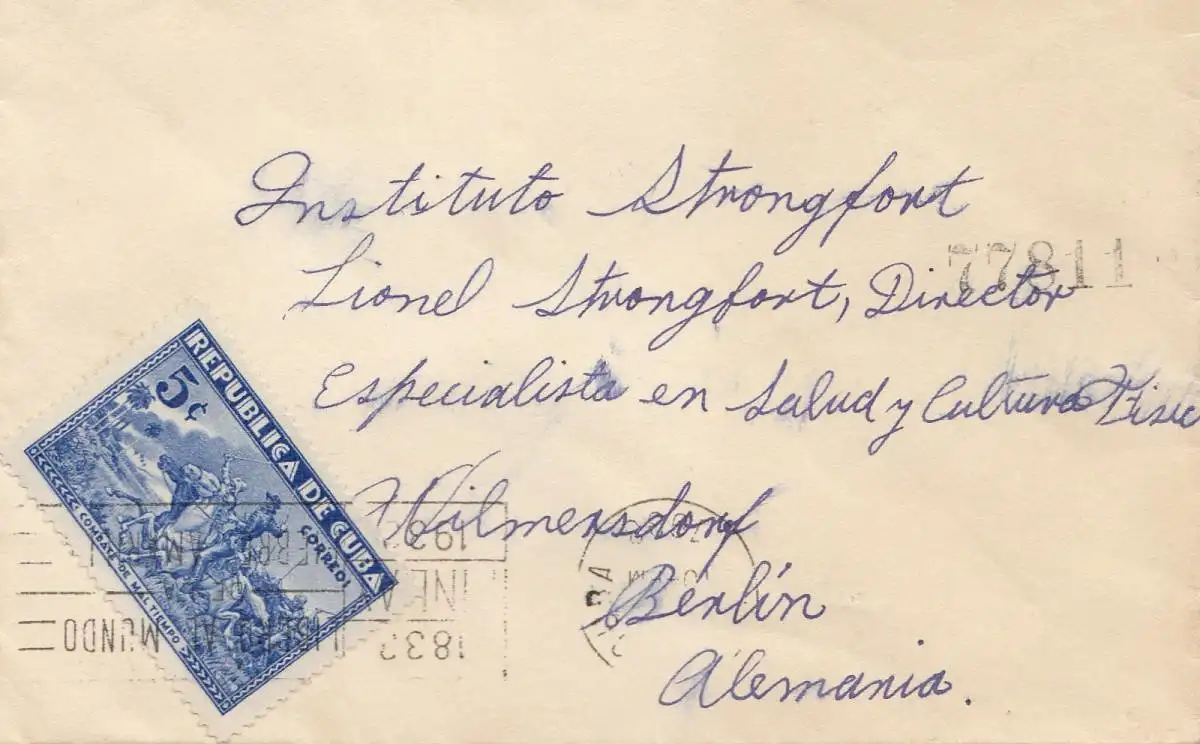 Instituto Strongfort
77811
Lionel Strongfort, Director
Especialista en Salud y Cultura Fisic
Wilmersdorf
Berlín
Alemania.
REPUBLICA DE CUBA
5¢
CORREOS
COMBATE DE MAL TIEMPO
1833
MUNDO